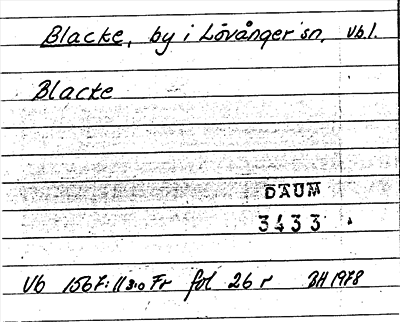 Blacke, by i Lövånger sn. Vb.l.
Blacke
DAUM
3433
Vb 1567:11 fol 26 r BH 1978